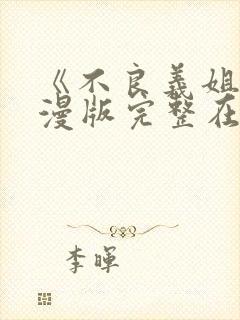 《不良義姐
漫版完整在
李暉